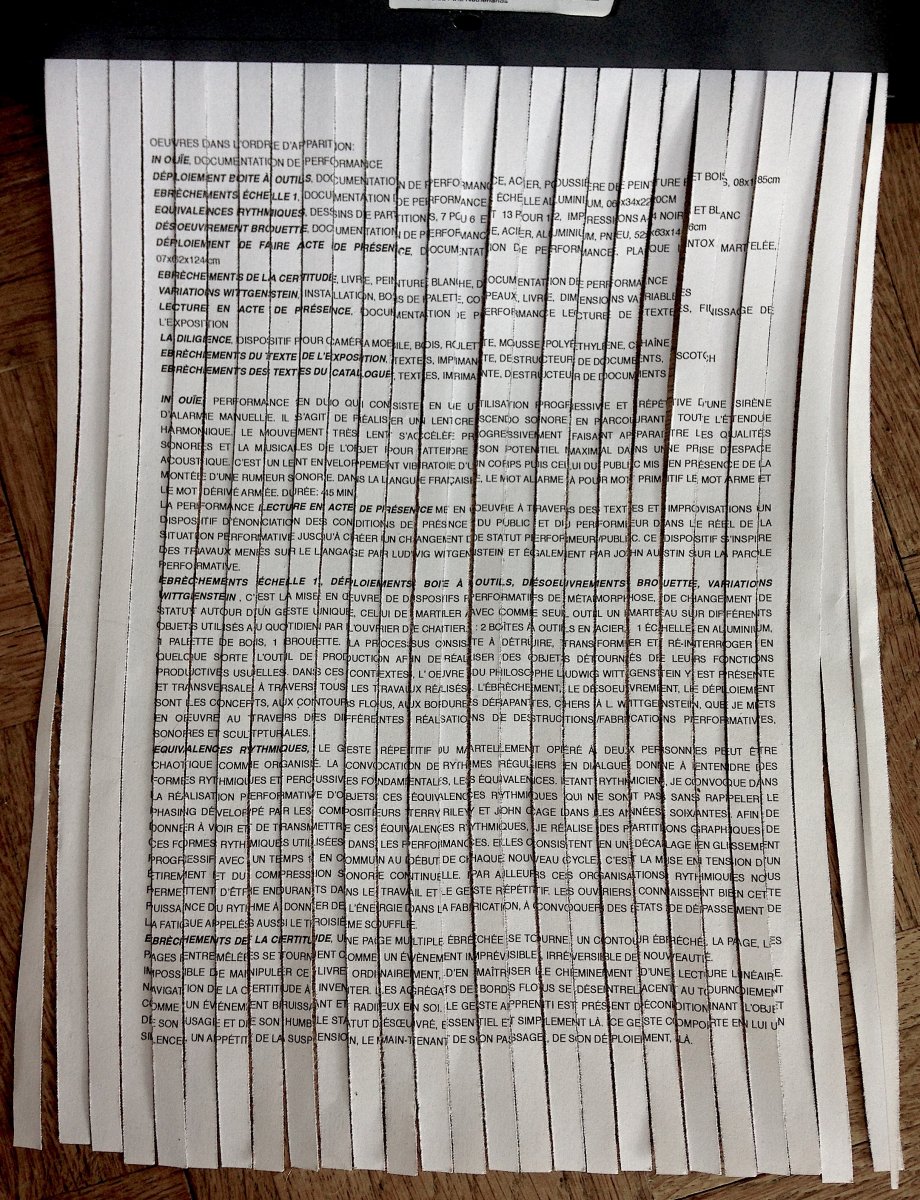 OEUVRES DANS L'ORDRE D'APPARITION:
IN OUÏE, DOCUMENTATION DE PERFORMANCE
DÉPLOIEMENT BOITE À OUTILS, DOCUMENTATION DE PERFORMANCE, ACIER, POUSSIÈRE DE PEINTURE ET BOIS, 08x185cm
EBRÈCHEMENTS ÉCHELLE 1, DOCUMENTATION DE PERFORMANCE, ÉCHELLE ALUMINIUM,
EQUIVALENCES RYTHMIQUES, DESSINS DE PARTITIONS, 7 POUR 6 ET 13 POUR 12, IMPRESSIONS A4 NOIR ET BLANC
DÉSOEUVREMENT BROUETTE, DOCUMENTATION DE PERFORMANCE, ACIER, ALUMINIUM, PNEU,
DÉPLOIEMENT DE FAIRE ACTE DE PRÉSENCE, DOCUMENTATION DE PERFORMANCE. PLAQUE INTOX MARTELÉE,
07x62x124cm
EBRÈCHEMENTS DE LA CERTITUDE, LIVRE, PEINTURE BLANCHE, DOCUMENTATION DE PERFORMANCE
VARIATIONS WITTGENSTEIN, INSTALLATION, BOIS DE PALETTE, COPEAUX, LIVRE, DIMENSIONS VARIABLES
LECTURE EN ACTE DE PRÉSENCE, DOCUMENTATION DE PERFORMANCE LECTURE DE TEXTES, FINISSAGE DE
L'EXPOSITION
LA DILIGENCE, DISPOSITIF POUR CAMÉRA MOBILE, BOIS, ROLETTE, MOUSSE POLYÉTHYLÈNE, CHAÎNE
EBRÈCHEMENTS DU TEXTE DE L'EXPOSITION, TEXTES, IMPIMANTE, DESTRUCTEUR DE DOCUMENTS, SCOTCH
EBRÈCHEMENTS DES TEXTES DU CATALOGUE, TEXTES, IMRIMANTE, DESTRUCTEUR DE DOCUMENTS
IN OUÏE, PERFORMANCE EN DUO QUI CONSISTE EN UE UTILISATION PROGRESSIVE ET RÉPÉTITIVE D'UNE SIRÈNE
D'ALARME MANUELLE. IL S'AGIT DE RÉALISER UN LENT CRESCENDO SONORE EN PARCOURANT TOUTE L'ÉTENDUE
HARMONIQUE. LE MOUVEMENT TRÈS LENT S'ACCÉLÈE PROGRESSIVEMENT FAISANT APPARAITRE LES QUALITÉS
SONORES ET LA MUSICALES DE L'OBJET POUR ATTEIDRE SON POTENTIEL MAXIMAL DANS UNE PRISE D'ESPACE
ACOUSTIQUE. C'EST UN LENT ENVELOPPEMENT VIBRATOIE D'UN CORPS PUIS CELUI DU PUBLIC MIS EN PRÉSENCE DE LA
MONTÉE D'UNE RUMEUR SONORE. DANS LA LANGUE FRANÇAISE, LE MOT ALARME A POUR MOT PRIMITIF LE MOT ARME ET
LE MOT DÉRIVÉ ARMÉE. DURÉE: 45 MIN
LA PERFORMANCE LECTURE EN ACTE DE PRÉSENCE ME EN OEUVRE À TRAVERS DES TEXTES ET IMPROVISATIONS UN
DISPOSITIF D'ÉNONCIATION DES CONDITIONS DE PRÉSNCE DU PUBLIC ET DU PERFORMEUR DANS LE RÉEL DE LA
SITUATION PERFORMATIVE JUSQU'À CRÉER UN CHANGEMENT DE STATUT PERFORMEUR/PUBLIC. CE DISPOSITIF S'INSPIRE
DES TRAVAUX MENÉS SUR LE LANGAGE PAR LUDWIG WITGENSTEIN ET ÉGALEMENT PAR JOHN AUSTIN SUR LA PAROLE
PERFORMATIVE.
EBRÈCHEMENTS ÉCHELLE 1, DÉPLOIEMENTS BOIE À OUTILS, DÉSOEUVREMENTS BROUETTE, VARIATIONS
WITTGENSTEIN, C'EST LA MISE EN ŒUVRE DE DISPOSIFS PERFORMATIFS DE MÉTAMORPHOSE, DE CHANGEMENT DE
STATUT AUTOUR D'UN GESTE UNIQUE, CELUI DE MARTELER AVEC COMME SEUL OUTIL UN MARTEAU SUR DIFFÉRENTS
OBJETS UTILISÉS AU QUOTIDIEN PAR L'OUVRIER DE CHAITIERS : 2 BOÎTES À OUTILS EN ACIER, 1 ÉCHELLE EN ALUMINIUM,
1 PALETTE DE BOIS, 1 BROUETTE. LA PROCESSUS CONSISTE À DÉTRUIRE, TRANSFORMER ET RÉ-INTERROGER EN
QUELQUE SORTE L'OUTIL DE PRODUCTION AFIN DE RÉALISER DES OBJETS DÉTOURNÉS DE LEURS FONCTIONS
PRODUCTIVES USUELLES. DANS CES CONTEXTES, L'OEUVRE DU PHILOSOPHE LUDWIG WITTGENSTEIN Y EST PRÉSENTE
ET TRANSVERSALE. À TRAVERS TOUS LES TRAVAUX RÉALISÉS. L'ÉBRÈCHEMENT, LE DÉSOEUVREMENT, LE DÉPLOIEMENT
SONT LES CONCEPTS, AUX CONTOURS FLOUS, AUX BORDURES DÉRAPANTES, CHERS À L. WITTGENSTEIN, QUE JE METS
EN OEUVRE AU TRAVERS DES DIFFÉRENTES RÉALISATIONS DE DESTRUCTIONS/FABRICATIONS PERFORMATIVES,
SONORES ET SCULTPTURALES.
EQUIVALENCES RYTHMIQUES, LE GESTE RÉPÉTITIF DU MARTELLEMENT OPÉRÉ À DEUX PERSONNES PEUT ÊTRE
CHAOTIQUE COMME ORGANISÉ. LA CONVOCATION DE RYTHMES RÉGULIERS EN DIALGUE DONNE À ENTENDRE DES
FORMES RYTHMIQUES ET PERCUSSIVES FONDAMENTALES, LES ÉQUIVALENCES. ETANT RYTHMICIEN, JE CONVOQUE DANS
LA RÉALISATION PERFORMATIVE D'OBJETS CES ÉQUIVALENCES RYTHMIQUES QUI NE SONT PAS SANS RAPPELER LE
PHASING DÉVELOPPÉ PAR LES COMPOSITEURS TERRY RILEY ET JOHN CAGE DANS LES ANNÉES SOIXANTES. AFIN DE
DONNER À VOIR ET DE TRANSMETTRE CES ÉQUIVALENCES RYTHMIQUES, JE RÉALISE DES PARTITIONS GRAPHIQUES DE
CES FORMES RYTHMIQUES UTILISÉES DANS LES PERFOMANCES. ELLES CONSISTENT EN UN DÉCALAGE EN GLISSEMENT
PROGRESSIF AVEC UN TEMPS 1 EN COMMUN AU DÉBUT DE CHAQUE NOUVEAU CYCLE, C'EST LA MISE EN TENSION D'UN
ÉTIREMENT ET DU COMPRESSION SONORE CONTINUELLE. PAR AILLEURS CES ORGANISATIONS RYTHMIQUES NOUS
PERMETTENT D'ÊTRE ENDURANTS DANS LE TRAVAIL ET LE GESTE RÉPÉTITIF. LES OUVRIERS CONNAISSENT BIEN CETTE
PUISSANCE DU RYTHME À DONNER DE L'ÉNERGIE DANS LA FABRICATION, À CONVOQUER DES ÉTATS DE DÉPASSEMENT DE
LA FATIGUE APPELÉS AUSSI LE TROISIÈME SOUFFLE.
EBRÈCHEMENTS DE LA CERTITUDE, UNE PAGE MULTIPLE ÉBRÉCHÉE SE TOURNE, UN CONTOUR ÉBRÉCHÉ. LA PAGE, LES
PAGES ENTREMÊLÉES SE TOURNENT COMME UN ÉVÉNEMENT IMPRÉVISIBLE, IRRÉVERSIBLE DE NOUVEAUTÉ.
IMPOSSIBLE DE MANIPULER CE LIVRE ORDINAIREMENT, D'EN MAÎTRISER LE CHEMINEMENT D'UNE LECTURE LINÉAIRE.
NAVIGATION DE LA CERTITUDE À INVENTER. LES AGRÉGATS DE BORDS FLOUS SE DÉSENTRELACENT AU TOURNOIEMENT
COMME UN ÉVÉNEMENT BRUISSANT ET RADIEUX EN SOI. LE GESTE APPRENTI EST PRÉSENT DÉCONDITIONNANT L'OBJET
DE SON USAGE ET DE SON HUMBLE STATUT DÉSŒUVRÉ, ESSENTIEL ET SIMPLEMENT LÀ. CE GESTE COMPORTE EN LUI UN
SILENCE, UN APPÉTIT DE LA SUSPENSION, LE MAIN-TENANT DE SON PASSAGE, DE SON DÉPLOIEMENT, LÀ.